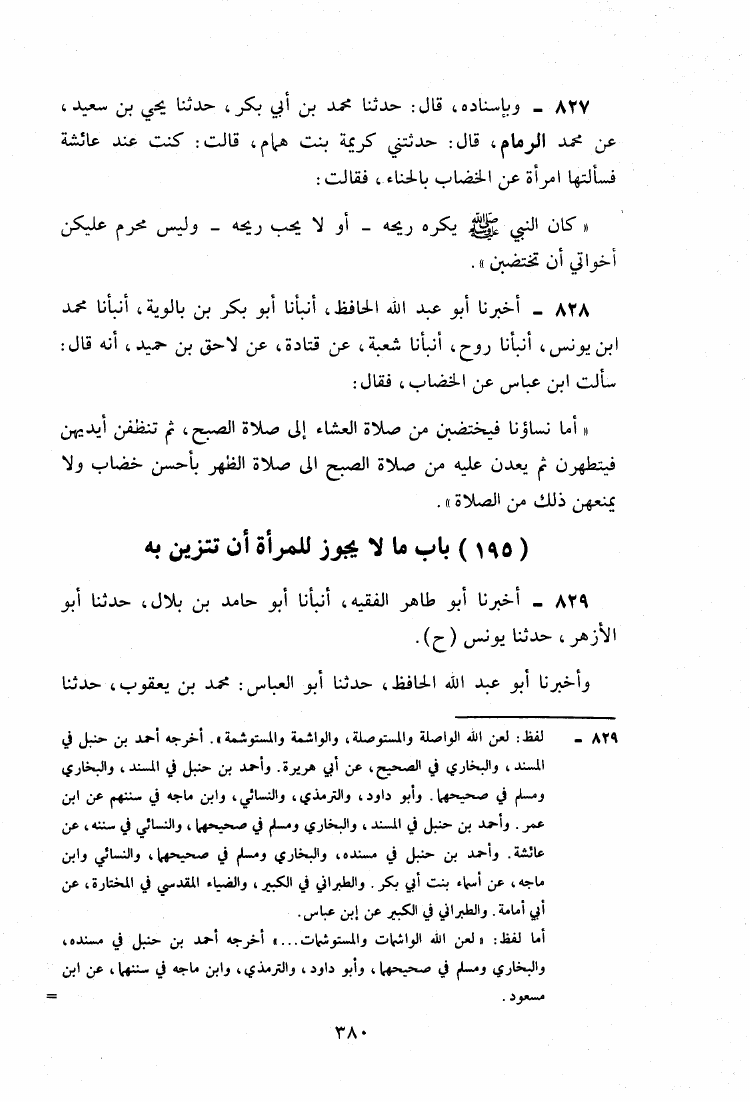 ٨٢٧ ـ وبإسناده، قال: حدثنا محمد بن أبي بكر، حدثنا يحيى بن سعيد،
عن محمد الرمام، قال: حدثتني كريمة بنت همام، قالت: كنت عند عائشة
فسألتها امرأة عن الخضاب بالحناء، فقالت:
« كان النبي ﷺ يكره ريحه ـ أو لا يحب ريحه ـ وليس محرم عليكن
أخواتي أن تختضبن ».
٨٢٨ ـ أخبرنا أبو عبد الله الحافظ، أنبأنا أبو بكر بن بالوية، أنبأنا محمد
ابن يونس، أنبأنا روح، أنبأنا شعبة، عن قتادة، عن لاحق بن حميد، أنه قال:
سألت ابن عباس عن الخضاب، فقال:
« أما نساؤنا فيختضبن من صلاة العشاء إلى صلاة الصبح، ثم تنظفن أيديهن
فيتطهرن ثم يعدن عليه من صلاة الصبح الى صلاة الظهر بأحسن خضاب ولا
يمنعهن ذلك من الصلاة ».
( ١٩٥ ) باب ما لا يجوز للمرأة أن تتزين به
٨٢٩ ـ أخبرنا أبو طاهر الفقيه، أنبأنا أبو حامد بن بلال، حدثنا أبو
الأزهر، حدثنا يونس (ح).
وأخبرنا أبو عبد الله الحافظ، حدثنا أبو العباس: محمد بن يعقوب، حدثنا
٨٢٩ ـ لفظ: لعن الله الواصلة والمستوصلة، والواشمة والمستوشمة». أخرجه أحمد بن حنبل في
المسند، والبخاري في الصحيح، عن أبي هريرة. وأحمد بن حنبل في المسند، والبخاري
ومسلم في صحيحهما. وأبو داود، والترمذي، والنسائي، وابن ماجه في سننهم عن ابن
عمر. وأحمد بن حنبل في المسند، والبخاري ومسلم في صحيحهما، والنسائي في سننه، عن
عائشة. وأحمد بن حنبل في مسنده، والبخاري ومسلم في صحيحهما، والنسائي وابن
ماجه، عن أسماء بنت أبي بكر. والطبراني في الكبير، والضياء المقدسي في المختارة، عن
أبي أمامة. والطبراني في الكبير عن إبن عباس.
أما لفظ: «لعن الله الواشمات والمستوشمات...» أخرجه أحمد بن حنبل في مسنده،
والبخاري ومسلم في صحيحهما، وأبو داود، والترمذي، وابن ماجه في سننهما، عن ابن
مسعود. =
٣٨٠